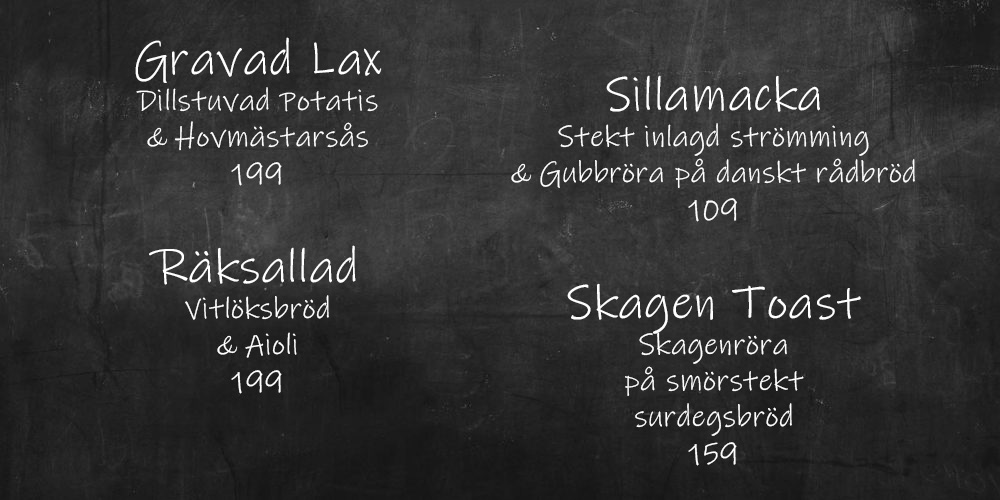 Gravad Lax
Dillstuvad Potatis
& Hovmästarsås
199
Räksallad
Vitlöksbröd
& Aioli
199
Sillamacka
Stekt inlagd strömming
& Gubbröra på danskt rådbröd
109
Skagen Toast
Skagenröra
på smörstekt
surdegsbröd
159